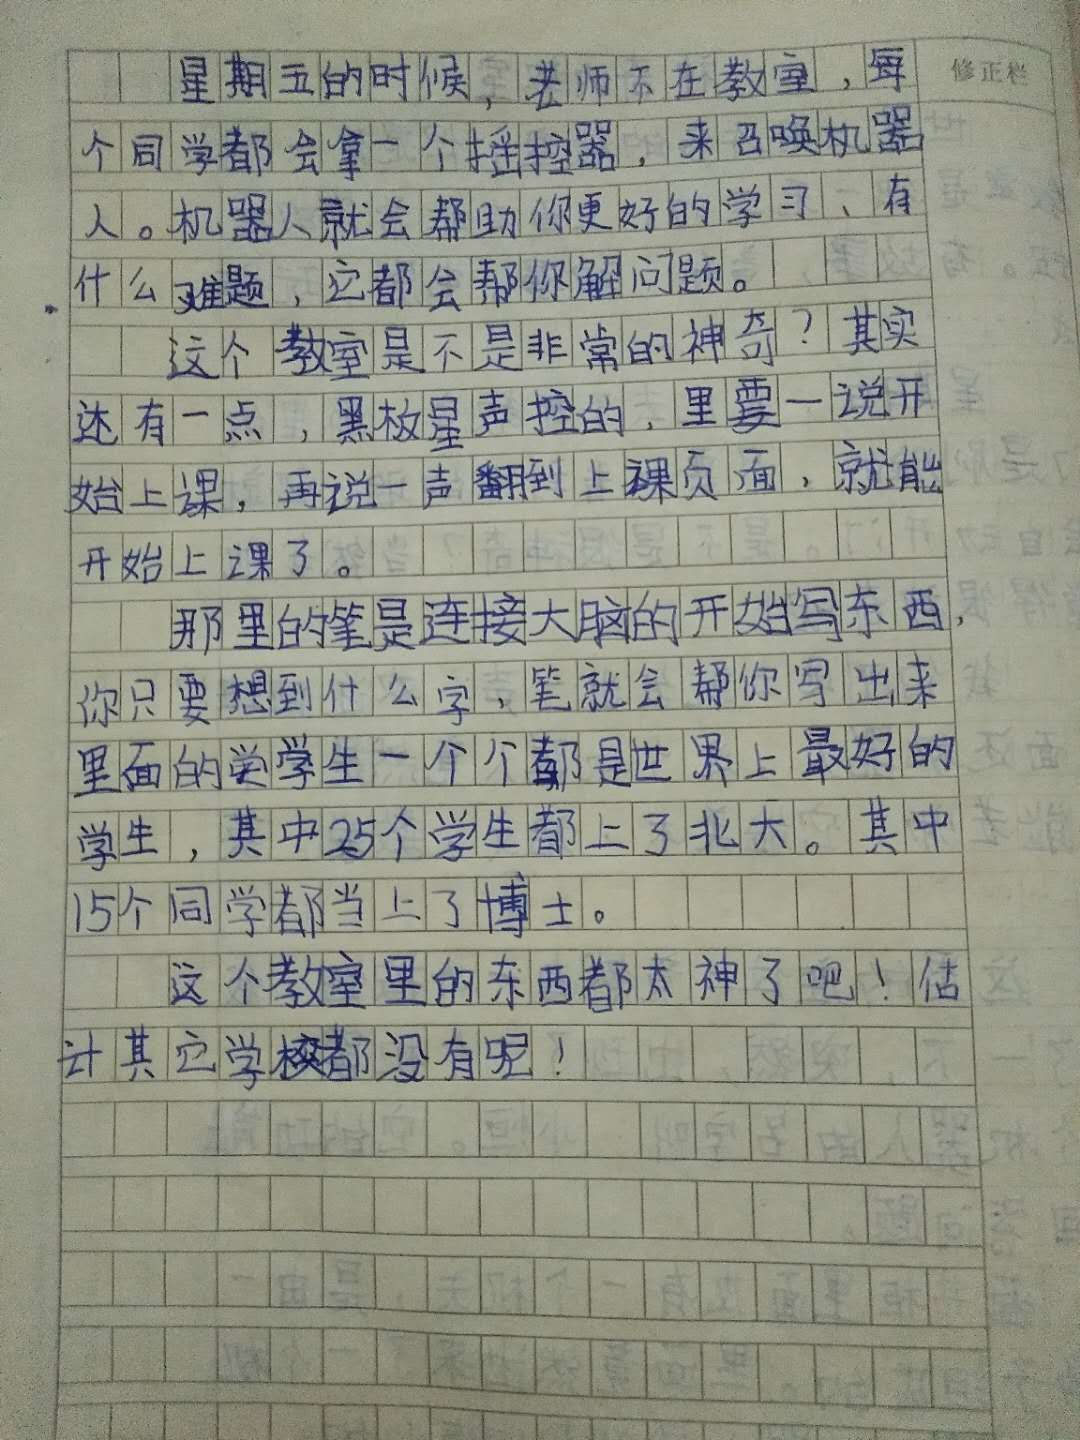 修正栏
星期五的时候，老师不在教室，每
个同学都会拿一个摇控器，来召唤机器
人。机器人就会帮助你更好的学习、有
什么难题，它都会帮你解问题。
这个教室是不是非常的神奇？其实
还有一点，黑板是声控的，里要一说开
始上课，再说一声翻到上课页面，就能
开始上课了。
那里的笔是连接大脑的开始写东西，
你只要想到什么字，笔就会帮你写出来
里面的学学生一个个都是世界上最好的
学生，其中25个学生都上了北大。其中
15个同学都当上了博士。
这个教室里的东西都太神了吧！估
计其它学校都没有呢！